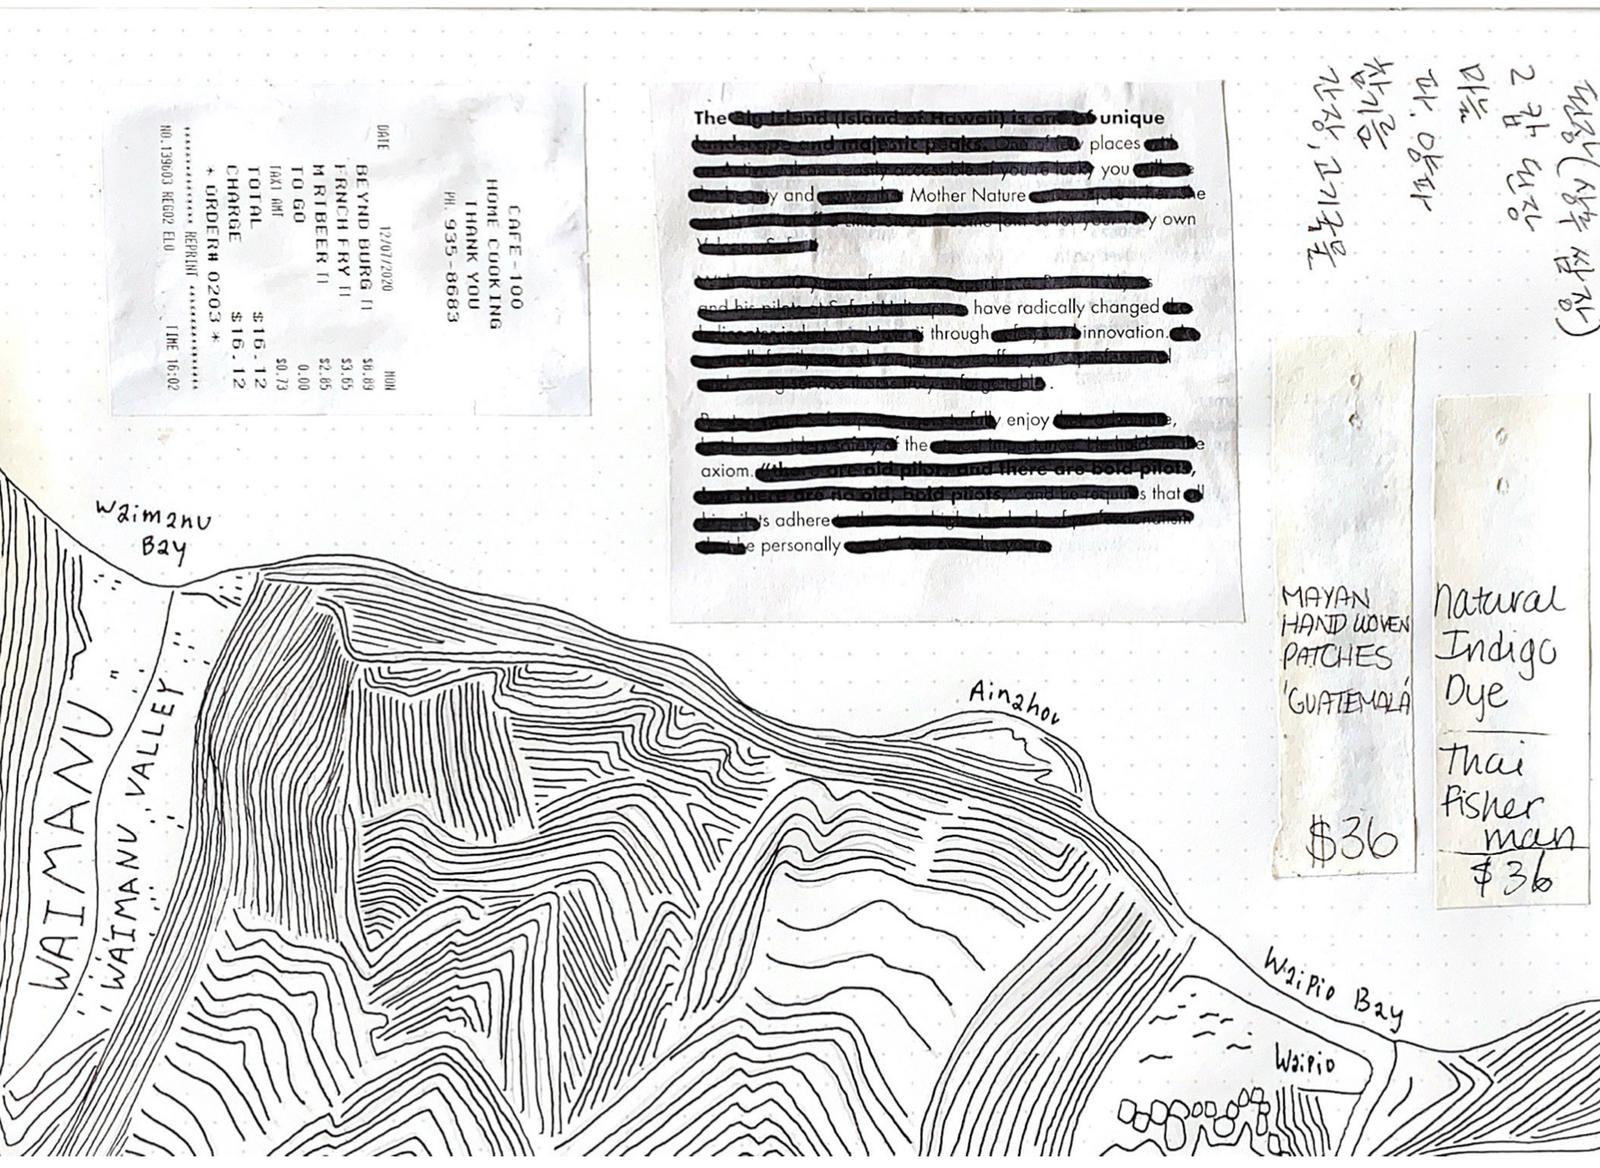 CAFE-100
HOME COOKING
THANK YOU
PH. 935-8683
DATE 12/07/2020 MON
BEYND BURG T1 $8.89
FRNCH FRY T1 $3.65
M RTBEER T1 $2.85
TO GO 0.00
TAX1 AMT $0.73
TOTAL $16.12
CHARGE $16.12
* ORDER# 0203 *
REPRINT
NO.139603 REG02 TIME 16:02
The unique
places
you
and Mother Nature
own
have radically changed
through innovation.
enjoy
the
axiom.
that
adhere
personally
된장 (상추 쌈장)
된장
마늘
파, 양파
참기름
간장, 고기국물
MAYAN
HAND WOVEN
PATCHES
'GUATEMALA'
$36
Natural
Indigo
Dye
Thai
Fisher
man
$36
Waimanu
Bay
WAIMANU
WAIMANU VALLEY
Ainahou
Waipio Bay
Waipio